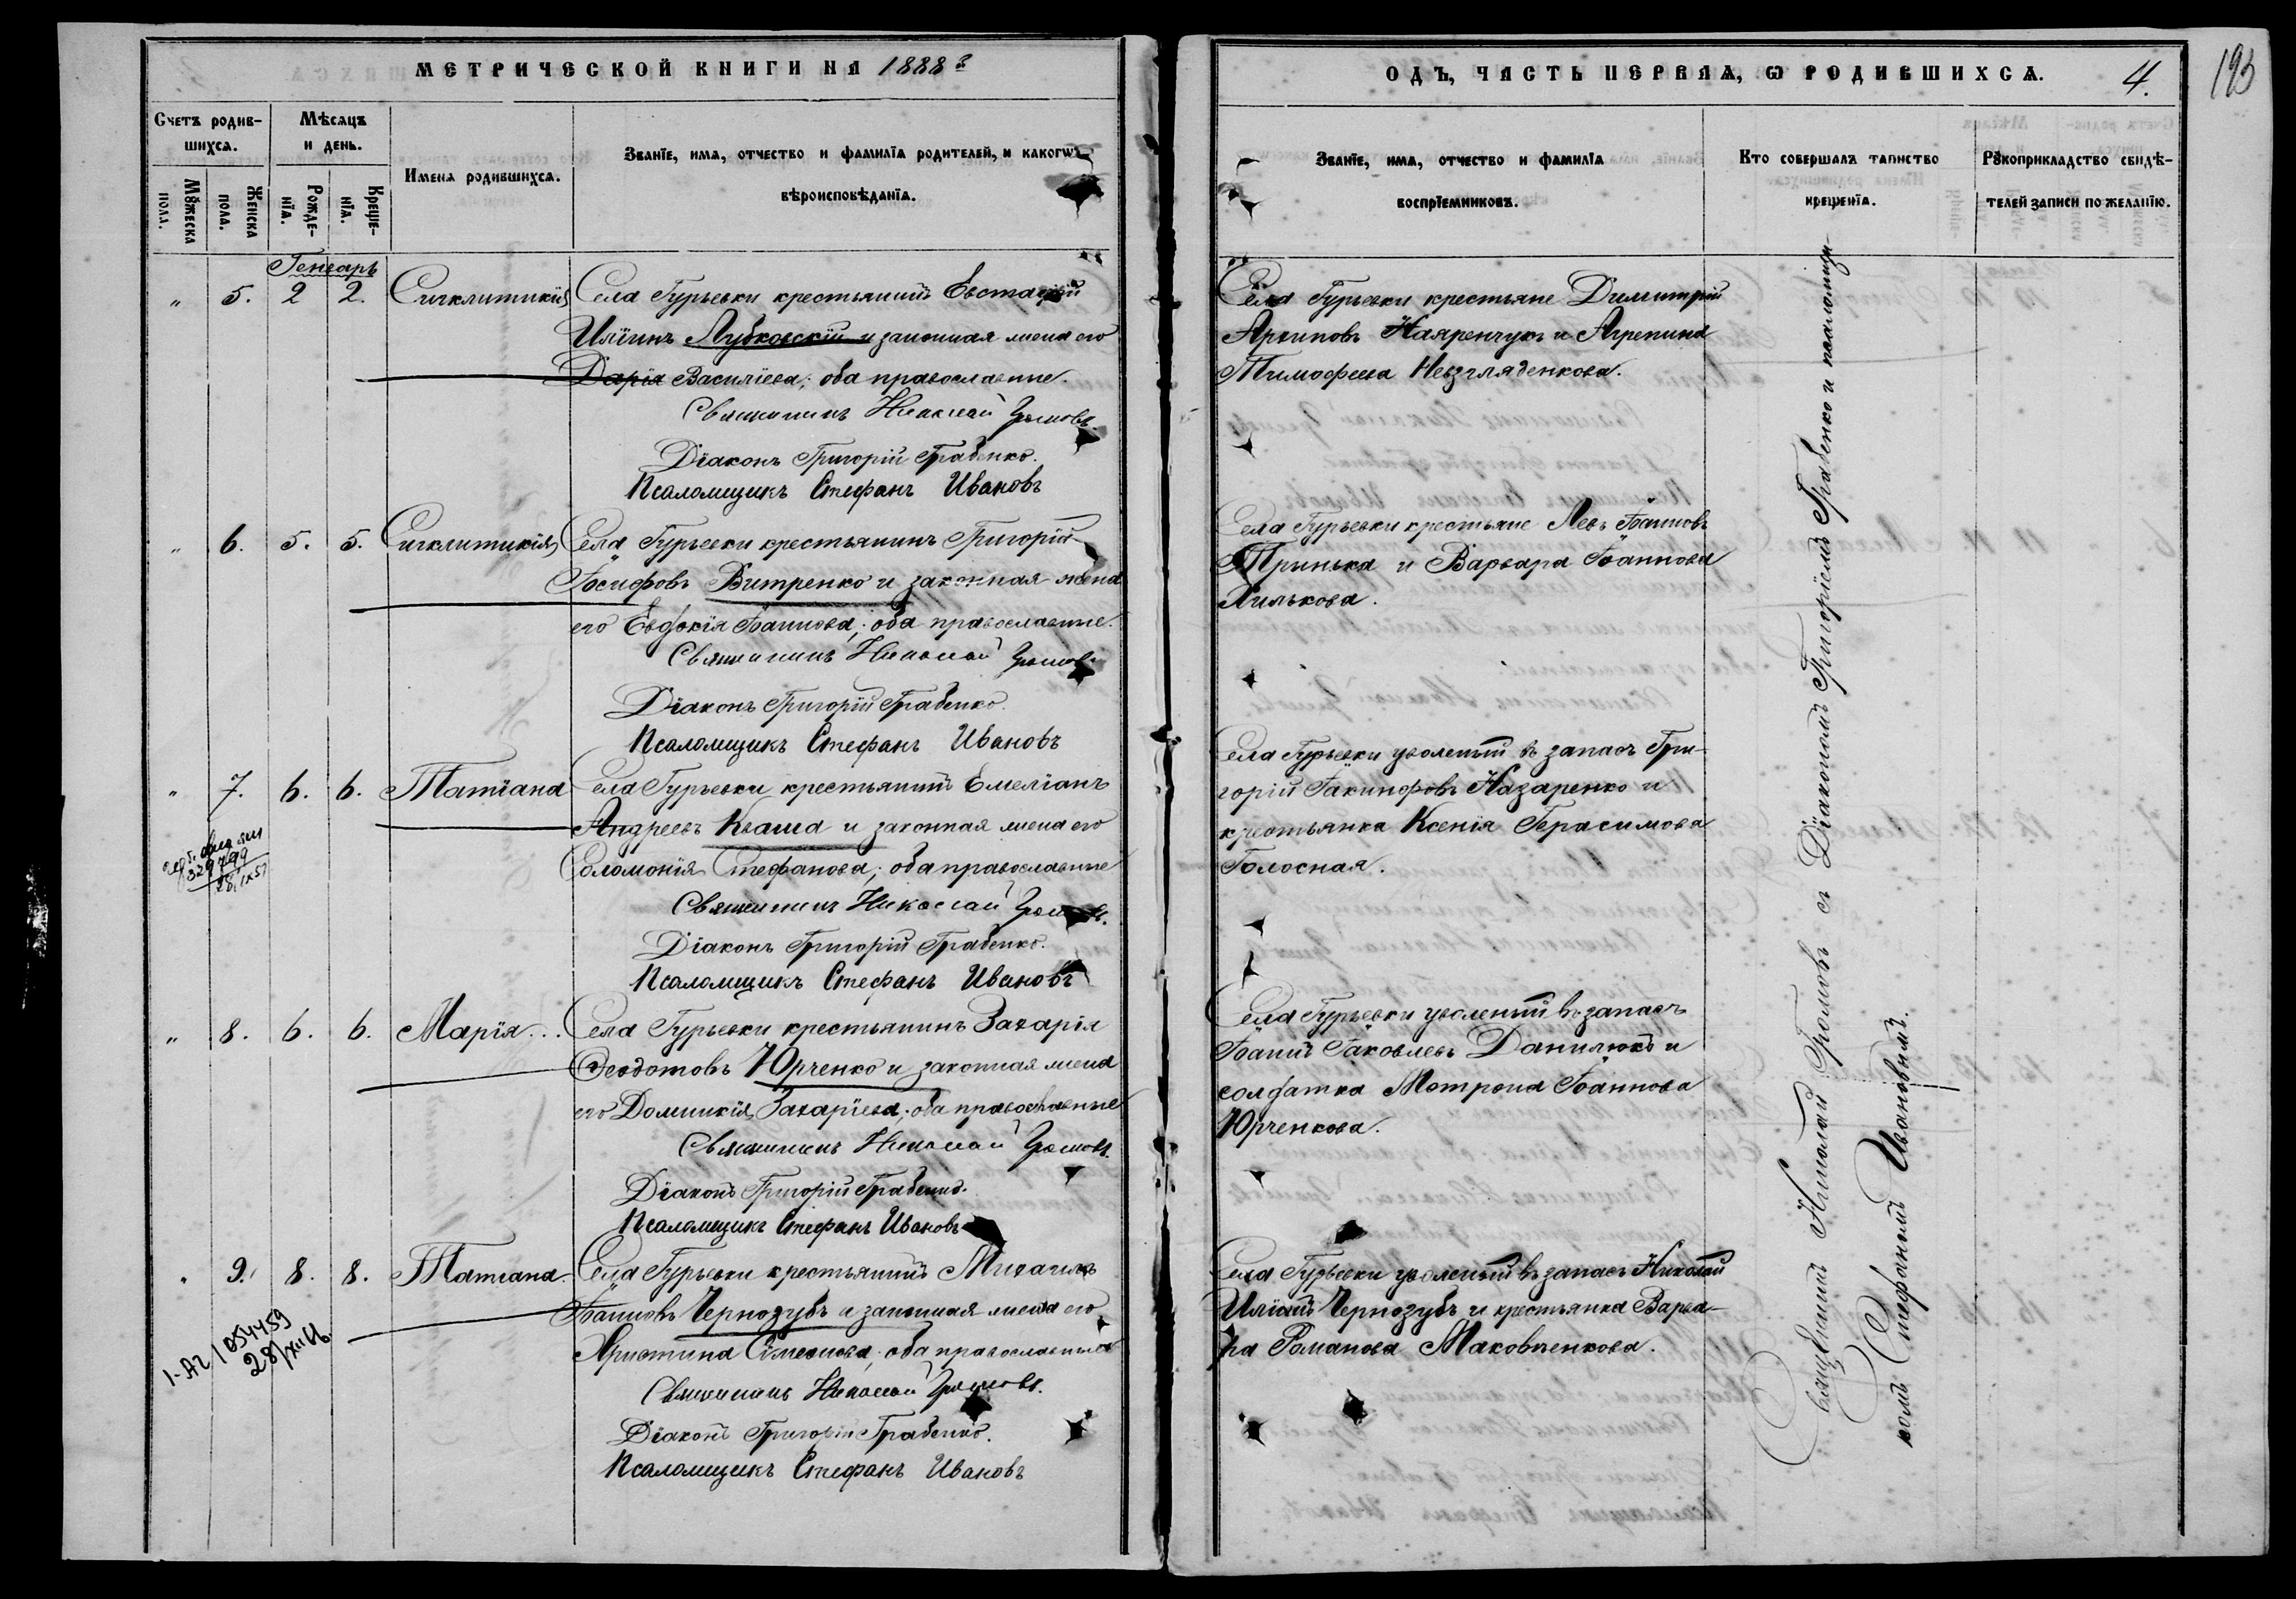 МЕТРИЧЕСКОЙ КНИГИ НА 1888 г
Счетъ родив-
шихся.
Мѣсяцъ
и день.
Имена родившихся.
Званїе, имя, отчество и фамилїа родителей, и какогѡ
вѣроисповѣданїа.
Мꙋжеска
пола.
Женска
пола.
Рожде-
нїа.
Креще-
нїа.
Генварь
" 5. 2 2. Сигклитикія Села Гурьевки крестьянинъ Евстафій
Иліинъ Лубковскій и законная жена его
Дарія Василіева; оба православные.
Священникъ Николай Громовъ.
Діаконъ Григорій Грабенко.
Псаломщикъ Стефанъ Ивановъ
" 6. 5. 5. Сигклитикія Села Гурьевки крестьянинъ Григорій
Іосифовъ Витренко и законная жена
его Евдокія Іоаннова; оба православные.
Священникъ Николай Громовъ
Діаконъ Григорій Грабенко.
Псаломщикъ Стефанъ Ивановъ
" 7. 6. 6. Татіана Села Гурьевки крестьянинъ Емеліанъ
Андреевъ Кваша и законная жена его
Соломонія Стефанова; оба православные
329799
28.IX.51
Священникъ Николай Громовъ.
Діаконъ Григорій Грабенко.
Псаломщикъ Стефанъ Ивановъ
" 8. 6. 6. Марія... Села Гурьевки крестьянинъ Захарія
Феодотовъ Юрченко и законная жена
его Домникія Захаріева; оба православные
Священникъ Николай Громовъ.
Діаконъ Григорій Грабенко.
Псаломщикъ Стефанъ Ивановъ
" 9. 8. 8. Татіана. Села Гурьевки крестьянинъ Михаилъ
Іоанновъ Чернозубъ и законная жена его
Христина Симеонова; оба православные
1-АГ/054459
28/XII
Священникъ Николай Громовъ.
Діаконъ Григорій Грабенко.
Псаломщикъ Стефанъ Ивановъ
ОДЪ, ЧАСТЬ ПЕРВАЯ, Ѡ РОДИВШИХСЯ. 4.
193
Званїе, имя, отчество и фамилїа
воспрїемниковъ.
Кто совершалъ таинство
крещенїа.
Рꙋкоприкладство свидѣ-
телей записи по желанїю.
Села Гурьевки крестьяне Димитрій
Архиповъ Наяренчукъ и Агрепина
Тимофеева Невзгляденкова.
Села Гурьевки крестьяне Левъ Іоанновъ
Тринька и Варвара Іоаннова
Хилькова.
Села Гурьевки уволеный въ запасъ Гри-
горій Іакинфовъ Назаренко и
крестьянка Ксенія Герасимова
Голосная.
Села Гурьевки уволеный въ запасъ
Іоаннъ Іаковлевъ Данилюкъ и
солдатка Матрона Іоаннова
Юрченкова.
Села Гурьевки уволеный въ запасъ Николай
Иліинъ Чернозубъ и крестьянка Варва-
ра Романова Маковиенкова.
Священникъ Николай Громовъ съ Діакономъ Григоріемъ Грабенко и псаломщи-
комъ Стефаномъ Ивановымъ.